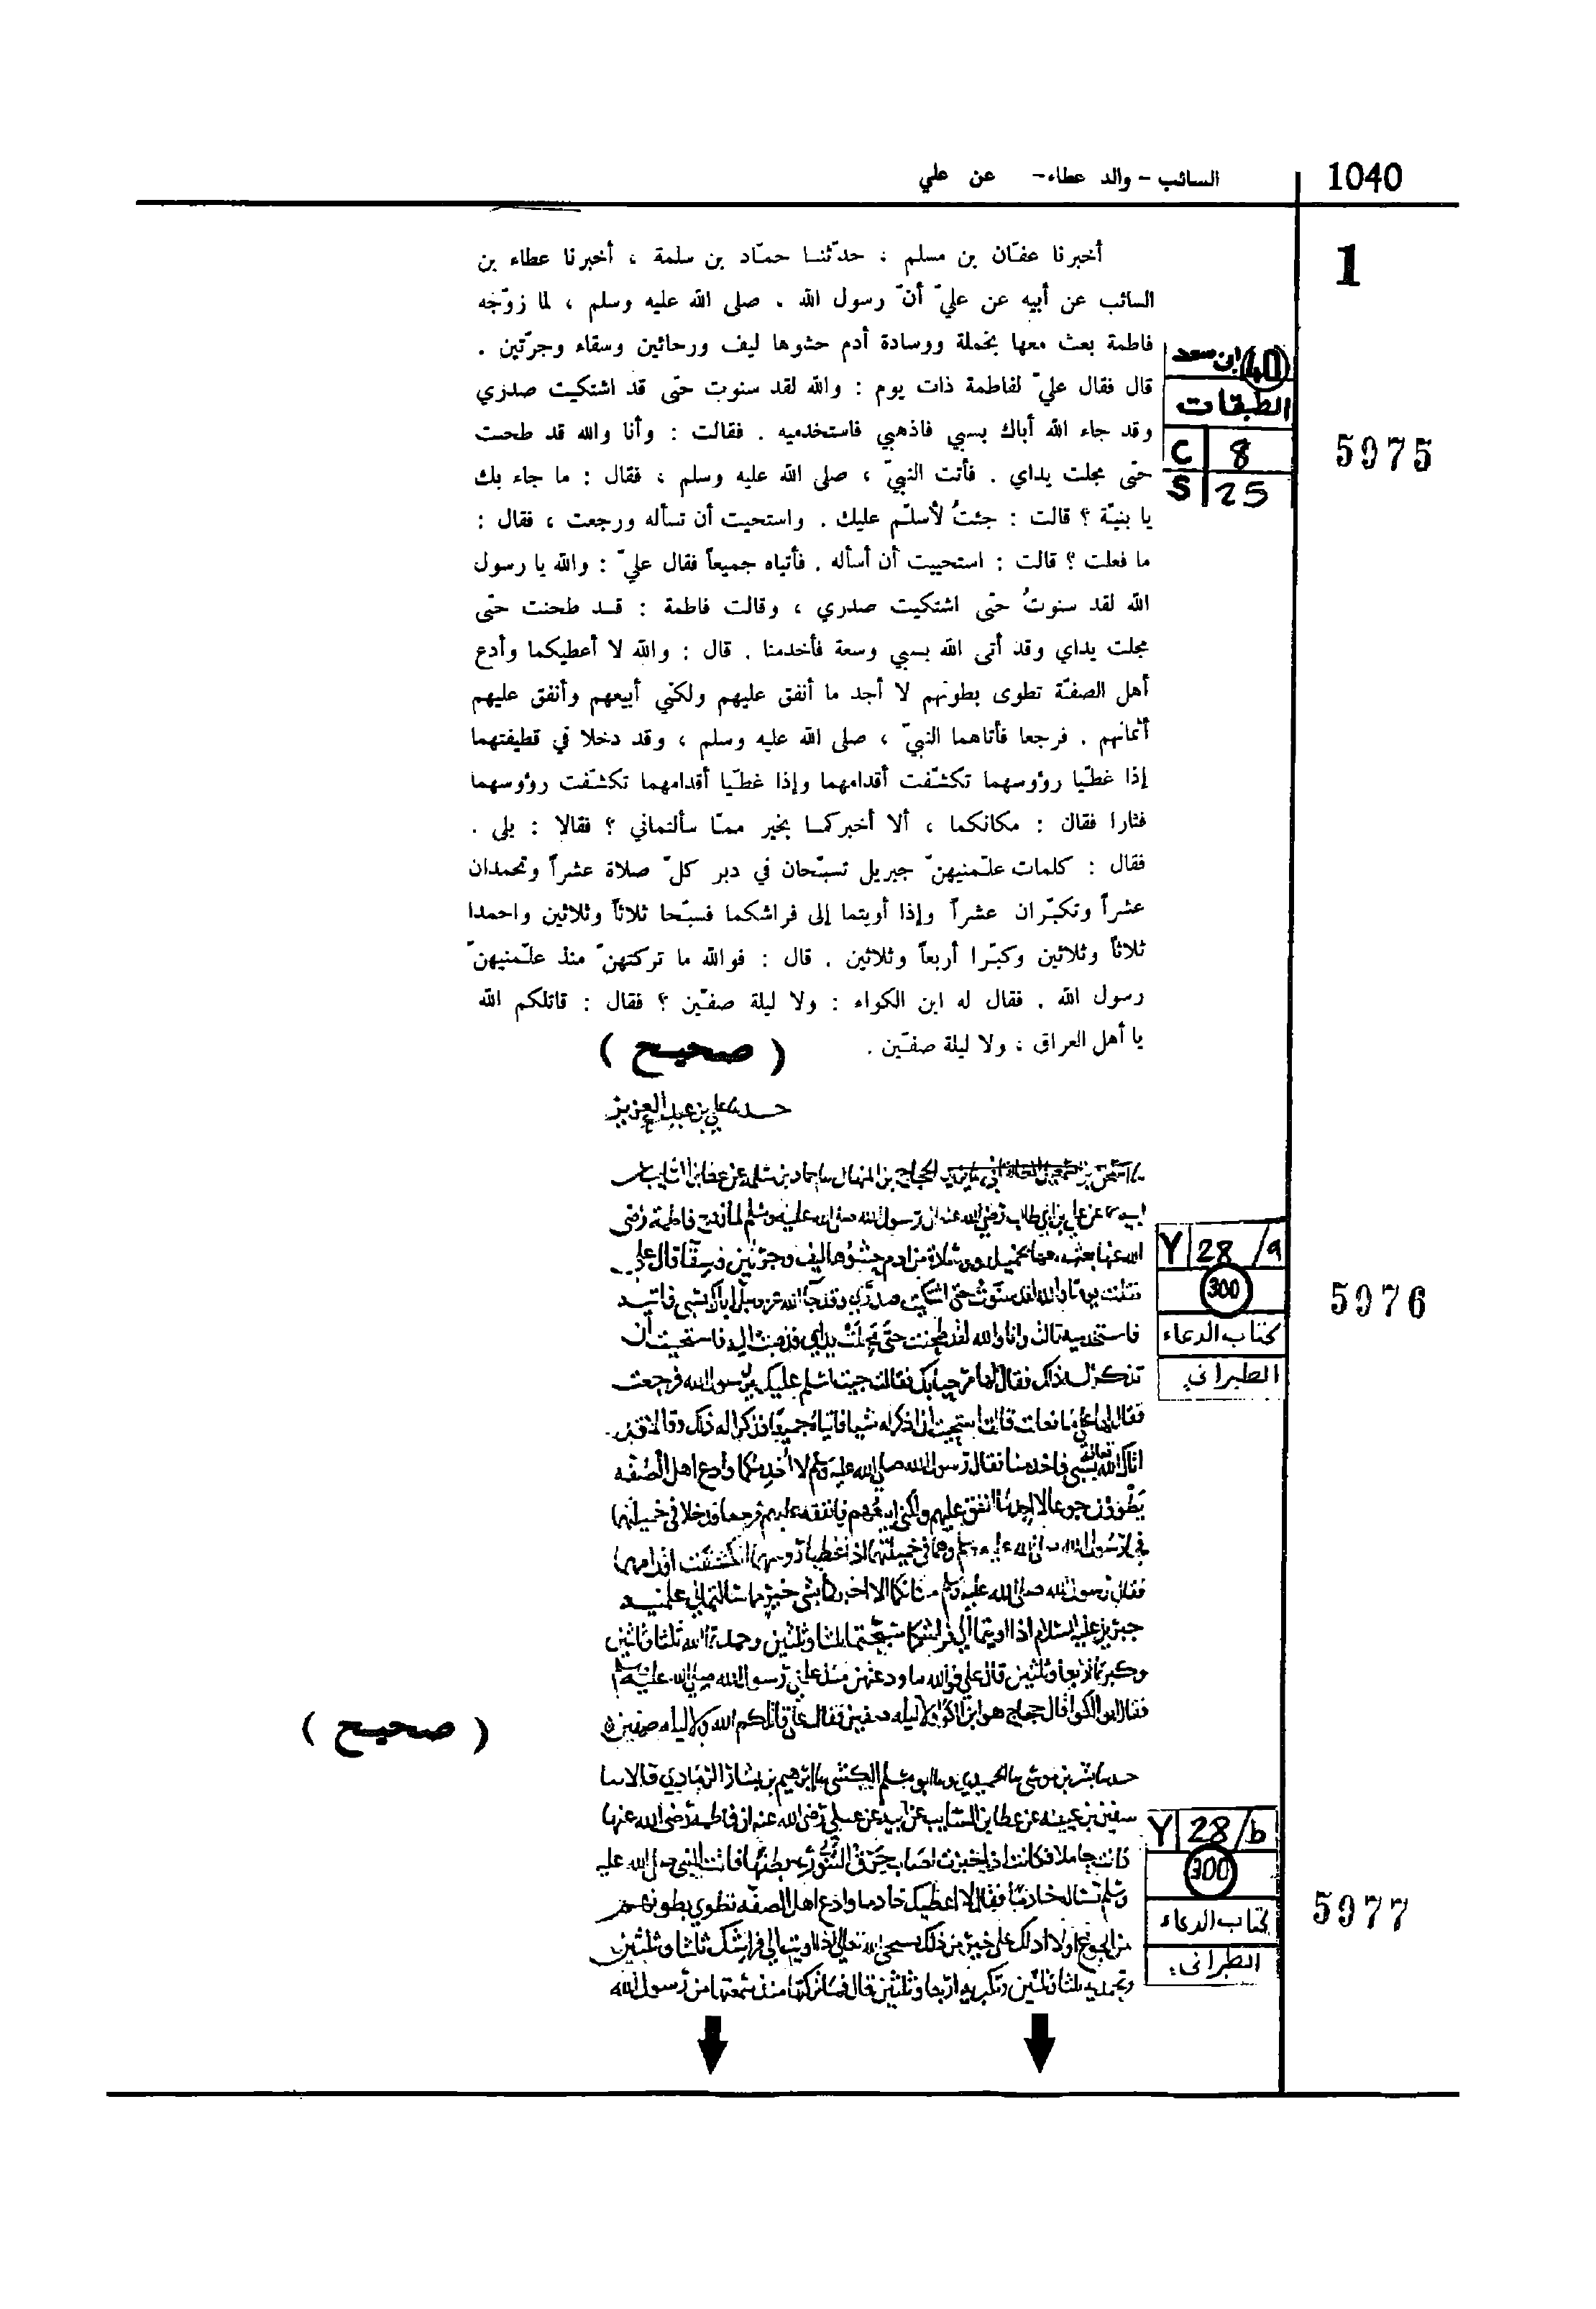 1040
السائب - والد عطاء - عن علي
1
أخبرنا عفّان بن مسلم ، حدّثنا حمّاد بن سلمة ، أخبرنا عطاء بن
السائب عن أبيه عن عليّ أنّ رسول الله . صلى الله عليه وسلم ، لما زوّجه
فاطمة بعث معها بخملة ووسادة أدم حشوها ليف ورحائين وسقاء وجرّتين .
قال فقال عليّ لفاطمة ذات يوم : والله لقد سنوت حتّى قد اشتكيت صدري
وقد جاء الله أباك بسبي فاذهبي فاستخدميه . فقالت : وأنا والله قد طحنت
حتّى مجلت يداي . فأتت النبيّ ، صلى الله عليه وسلم ، فقال : ما جاء بك
يا بنيّة ؟ قالت : جئتُ لأسلّم عليك . واستحيت أن تسأله ورجعت ، فقال :
ما فعلت ؟ قالت : استحييت أن أسأله . فأتياه جميعاً فقال عليّ : والله يا رسول
الله لقد سنوتُ حتّى اشتكيت صدري ، وقالت فاطمة : قد طحنت حتّى
مجلت يداي وقد أتى الله بسبي وسعة فأخدمنا . قال : والله لا أعطيكما وأدع
أهل الصفّة تطوى بطونهم لا أجد ما أنفق عليهم ولكنّي أبيعهم وأنفق عليهم
أثمانهم . فرجعا فأتاهما النبيّ ، صلى الله عليه وسلم ، وقد دخلا في قطيفتهما
إذا غطّيا رؤوسهما تكشّفت أقدامهما وإذا غطّيا أقدامهما تكشّفت رؤوسهما
فثارا فقال : مكانكما ، ألا أخبركما بخير ممّا سألتماني ؟ فقالا : بلى .
فقال : كلمات علّمنيهنّ جبريل تسبّحان في دبر كلّ صلاة عشراً وتحمدان
عشراً وتكبّران عشراً وإذا أويتما إلى فراشكما فسبّحا ثلاثاً وثلاثين واحمدا
ثلاثاً وثلاثين وكبّرا أربعاً وثلاثين . قال : فوالله ما تركتهنّ منذ علّمنيهنّ
رسول الله . فقال له ابن الكواء : ولا ليلة صفّين ؟ فقال : قاتلكم الله
يا أهل العراق ، ولا ليلة صفّين . ( صحيح )
ابن سعد 40
الطبقات
C 8
S 25
5975
حدثنا علي بن عبد العزيز
الحجاج بن المنهال حماد بن سلمة عن عطا بن السايب
عن علي بن ابي طالب رضي الله عنه ان رسول الله صلى الله عليه وسلم لما زوجه فاطمة رضي
الله عنها بعث معها من ادم حشوها ليف وجرتين وسقا قال علي
لقد سنوت حتى اشتكيت صدري وقد جا الله عز وجل اباك بسبي
فاستخدميه قالت وانا والله لقد طحنت حتى مجلت يداي فذهبت اليه فاستحيت ان
تذكر له ذاك فقال لها مرحبا بك فقالت جيت اسلم عليك يرسول الله فرجعت
فقال لها علي ما فعلت قالت استحيت ان اذكر له شيا فاتياه جميعا فذكرا له ذلك وقالا قد
اتاك الله تعالى بسبي فاخدمنا فقال رسول الله صلى الله عليه وسلم لا اخدمكما وادع اهل الصفه
يطوون جوعا لا اجد ما انفق عليهم ولكني ابيعهم فانفقه عليهم فرجعا فدخلا في خميلتهما
رسول الله صلى الله عليه وسلم وهما في خميلتهما اذا غطيا روسهما انكشفت اقدامهما
فقال رسول الله صلى الله عليه وسلم مكانكما الا اخبركما بشي خير مما سالتماني علمنيه
جبريل عليه السلام اذا اويتما الي فراشكما سبحتما ثلثا وثلثين وحمدتما الله ثلثا وثلثين
وكبرتما اربعا وثلثين قال علي فوالله ما ودعتهن منذ علمني رسول الله صلى الله عليه وسلم
فقال ابن الكوا قال حجاج هو ابن الكوا ولا ليله صفين فقال علي قاتلكم الله ولا ليله صفين
( صحيح )
Y 28/a
300
كتاب الدعاء
الطبراني
5976
حدثنا بشر بن موسى الحميدي وابو مسلم الكشي ابرهيم بن بشار الرمادي قالا
سفين بن عيينه عن عطا بن السايب عن ابيه عن علي رضي الله عنه ان فاطمه رضي الله عنها
كانت حاملا فكانت اذا خبزت اصاب حرف التنور بطنها فاتت النبي صلى الله عليه
وسلم تساله خادما فقال لا اعطيك خادما وادع اهل الصفه تطوي بطونهم
من الجوع اولا ادلك على خير من ذلك تسبحي الله تعالى اذا اويت الي فراشك ثلثا وثلثين
وتحمديه ثلثا وثلثين وتكبريه اربعا وثلثين قال فما تركتها منذ سمعتها من رسول الله
Y 28/b
300
كتاب الدعاء
الطبراني
5977